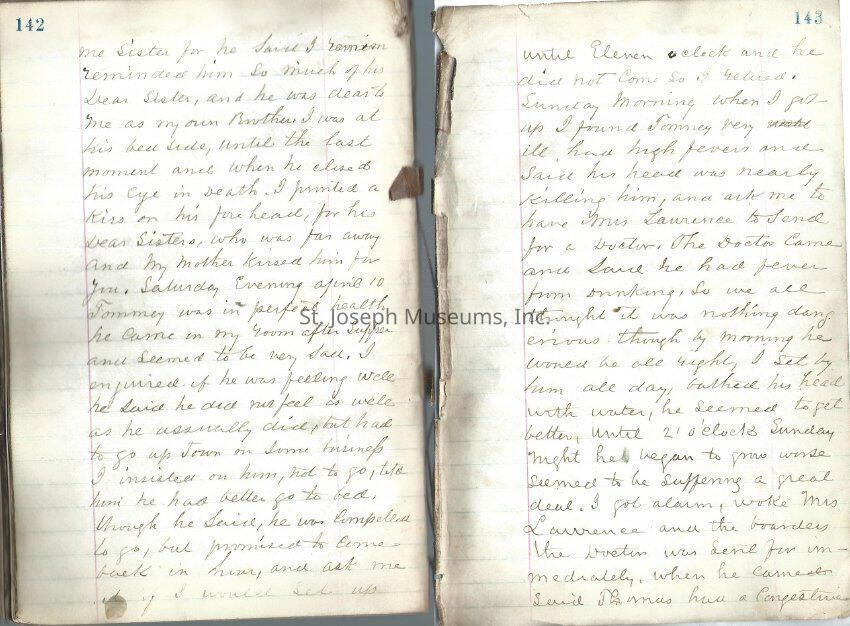 142
me Sister for he Said I remin
reminded him So much of his
Dear Sister, and he was dear to
me as my own Brother. I was at
his bed Side, until the last
moment and when he closed
his Eye in Death. I printed a
Kiss on his fore head, for his
Dear Sisters, who was far away
and my Mother Kissed him for
you. Saturday Evening april 10
Tommey was in perfect health
he came in my room after Supper
and Seemed to be very Sad. I
enquired if he was feeling well
he Said he did not feel as well
as he ussually did, but had
to go up Town on Some business
I insisted on him, not to go, told
him he had better go to bed,
though he Said, he was Compelled
to go, but promised to Come
back in hour, and ask me
if I would Set up
143
until Eleven oclock and he
did not Come So I retired.
Sunday Morning when I got
up I found Tommey very
ill, had high fevers and
Said his head was nearly
Killing him, and ask me to
have Mrs Lawrence to Send
for a Doctor. The Doctor Came
and Said he had fever
from drinking, So we all
thought it was nothing dang
erious though by morning he
would be all right, I Set by
him all day, bathed his head
with water, he Seemed to get
better, until 2 o'clock Sunday
night he began to grow worse
Seemed to be Suffering a great
deal. I got alarm, woke Mrs
Lawrence and the boarders
the Doctor was Sent for im-
mediately. when he Camed
Said Thomas had a Congestive
St. Joseph Museums, Inc.